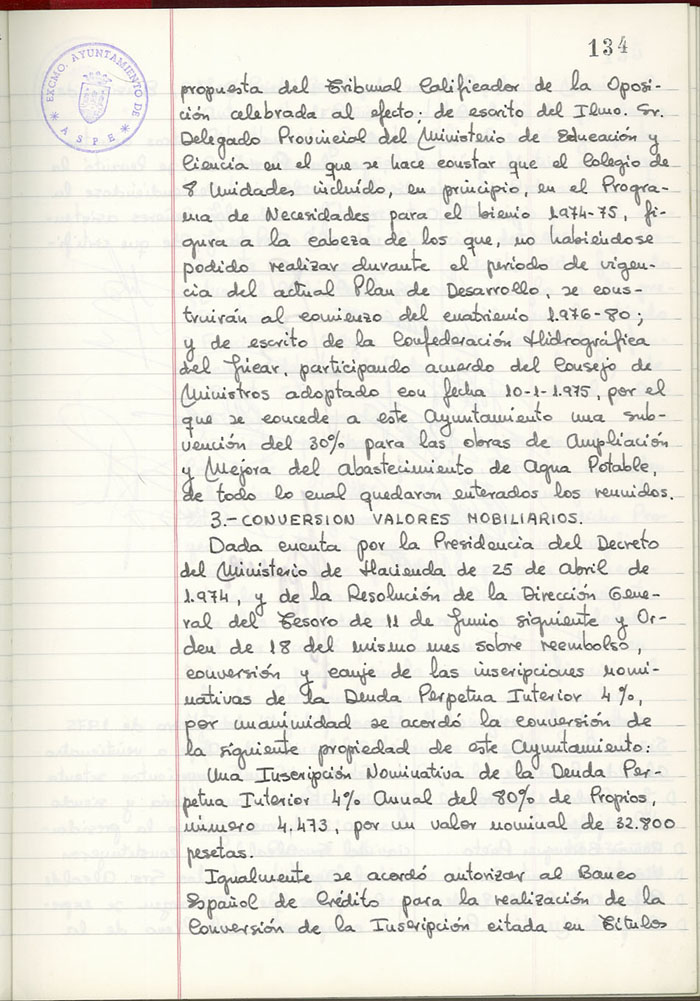 134
EXCMO. AYUNTAMIENTO DE
* ASPE *
propuesta del Tribunal Calificador de la Oposi-
ción celebrada al efecto; de escrito del Ilmo. Sr.
Delegado Provincial del Ministerio de Educación y
Ciencia en el que se hace constar que el Colegio de
8 Unidades incluído, en principio, en el Progra-
ma de Necesidades para el bienio 1.974-75, fi-
gura a la cabeza de los que, no habiéndose
podido realizar durante el período de vigen-
cia del actual Plan de Desarrollo, se cons-
truirán al comienzo del cuatrienio 1.976-80;
y de escrito de la Confederación Hidrográfica
del Júcar, participando acuerdo del Consejo de
Ministros adoptado con fecha 10-1-1.975, por el
que se concede a este Ayuntamiento una sub-
vención del 30% para las obras de Ampliación
y Mejora del abastecimiento de Agua Potable,
de todo lo cual quedaron enterados los reunidos.
3.- CONVERSION VALORES MOBILIARIOS.
Dada cuenta por la Presidencia del Decreto
del Ministerio de Hacienda de 25 de Abril de
1.974, y de la Resolución de la Dirección Gene-
ral del Tesoro de 11 de Junio siguiente y Or-
den de 18 del mismo mes sobre reembolso,
conversión y canje de las inscripciones nomi-
nativas de la Deuda Perpetua Interior 4%,
por unanimidad se acordó la conversión de
la siguiente propiedad de este Ayuntamiento:
Una Inscripción Nominativa de la Deuda Per-
petua Interior 4% Anual del 80% de Propios,
número 4.473, por un valor nominal de 32.800
pesetas.
Igualmente se acordó autorizar al Banco
Español de Crédito para la realización de la
Conversión de la Inscripción citada en Títulos